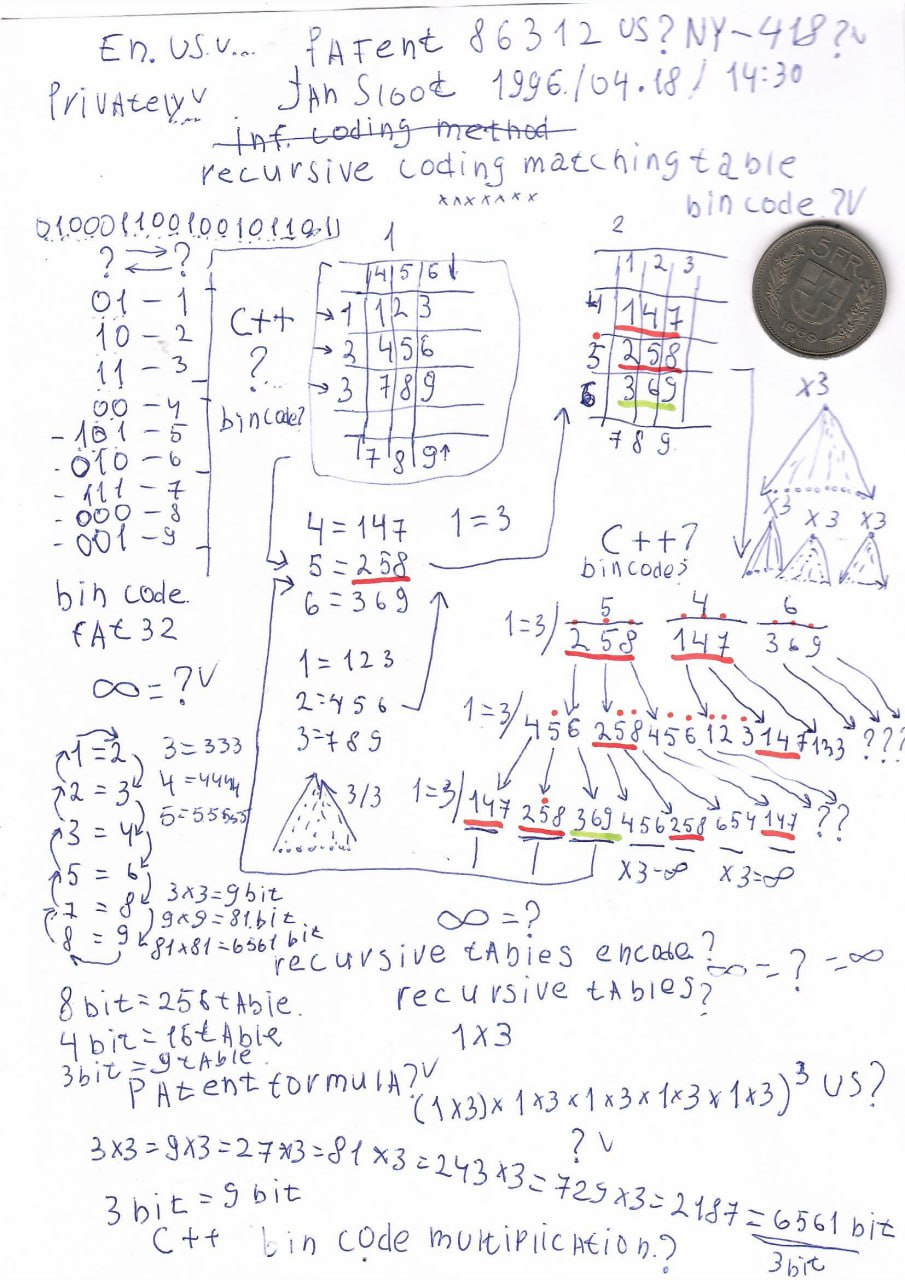 En. US.v... PAtent 86312 US? NY-418?v
Privately v JAn Sloot 1996/04.18/14:30
inf. coding method
recursive coding matching table
xxxxxxx
bin code ?V
010001100100101101
? ⇄ ?
01 - 1
10 - 2
11 - 3
00 - 4
- 101 - 5
- 010 - 6
- 111 - 7
- 000 - 8
- 001 - 9
bin code.
fAt 32
∞ = ?V
C++
?...
bin code?
1
4 5 6 ↓
→ 1 1 2 3
→ 2 4 5 6
→ 3 7 8 9
7 8 9↑
2
1 2 3
4 1 4 7
5 2 5 8
6 3 6 9
7 8 9
5 FR.
x3
x3 x3 x3
4 = 147
5 = 258
6 = 369
1 = 3
1 = 123
2 = 456
3 = 789
3/3
C++?
bin code?
5 4 6
1=3/ 258 147 369
1=3/ 456 258 456 123 147 133 ???
1=3/ 147 258 369 456 258 654 147 ??
x3=∞ x3=∞
1 = 2
2 = 3
3 = 4
5 = 6
7 = 8
8 = 9
3 = 333
4 = 4444
5 = 55555
3x3=9 bit
9x9=81 bit
81x81=6561 bit
∞ = ?
recursive tAbles encode?
∞ = ? = ∞
recursive tAbles?
1x3
8 bit = 256 tAble.
4 bit = 16 tAble
3 bit = 9 tAble.
PAtent formulA?V
(1x3)x1x3x1x3x1x3x1x3)³ US?
? V
3x3=9x3=27x3=81x3=243x3=729x3=2187=6561 bit
3 bit
3 bit = 9 bit
C++ bin code multiplicAtion.?